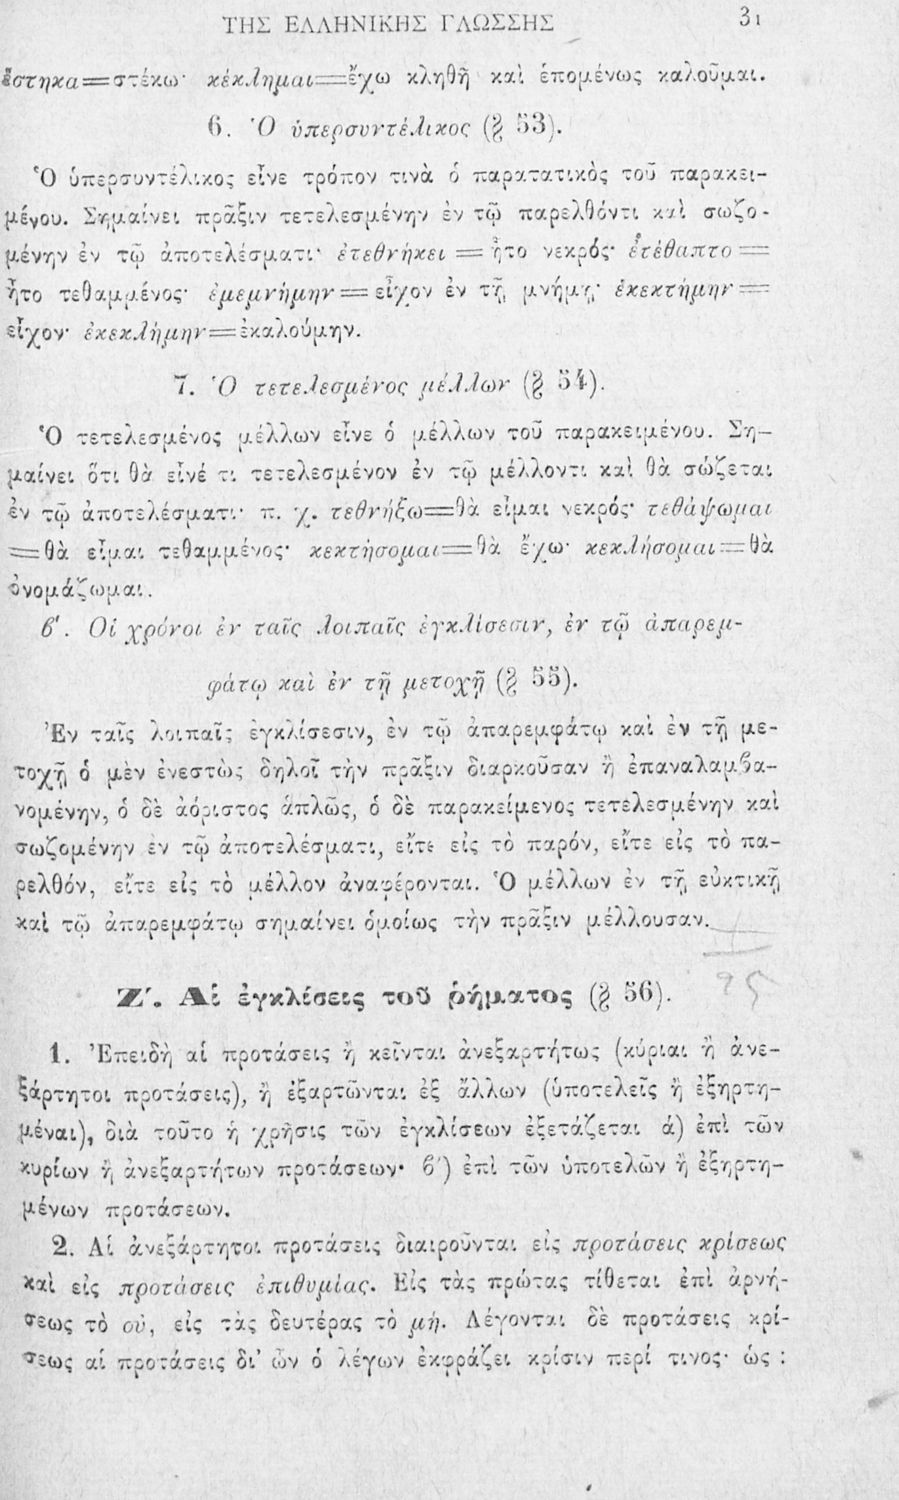 ΤΗΣ ΕΛΛΗΝΙΚΗΣ ΓΛΩΣΣΗΣ 31
ἕστηκα=στέκω· κέκλημαι=ἔχω κληθῆ καὶ ἑπομένως καλοῦμαι.
6. Ὁ ὑπερσυντέλικος (§ 53).
Ὁ ὑπερσυντέλικος εἶνε τρόπον τινὰ ὁ παρατατικὸς τοῦ παρακει-
μένου. Σημαίνει πρᾶξιν τετελεσμένην ἐν τῷ παρελθόντι καὶ σωζο-
μένην ἐν τῷ ἀποτελέσματι· ἐτεθνήκει = ἦτο νεκρός· ἐτέθαπτο =
ἦτο τεθαμμένος· ἐμεμνήμην = εἶχον ἐν τῇ μνήμῃ· ἐκεκτήμην =
εἶχον· ἐκεκλήμην=ἐκαλούμην.
7. Ὁ τετελεσμένος μέλλων (§ 54).
Ὁ τετελεσμένος μέλλων εἶνε ὁ μέλλων τοῦ παρακειμένου. Ση-
μαίνει ὅτι θὰ εἶνέ τι τετελεσμένον ἐν τῷ μέλλοντι καὶ θὰ σώζεται
ἐν τῷ ἀποτελέσματι· π. χ. τεθνήξω=θὰ εἶμαι νεκρός· τεθάψωμαι
=θὰ εἶμαι τεθαμμένος· κεκτήσομαι=θὰ ἔχω· κεκλήσομαι=θὰ
ὀνομάζωμαι.
β'. Οἱ χρόνοι ἐν ταῖς λοιπαῖς ἐγκλίσεσιν, ἐν τῷ ἀπαρεμ-
φάτῳ καὶ ἐν τῇ μετοχῇ (§ 55).
Ἐν ταῖς λοιπαῖς ἐγκλίσεσιν, ἐν τῷ ἀπαρεμφάτῳ καὶ ἐν τῇ με-
τοχῇ ὁ μὲν ἐνεστὼς δηλοῖ τὴν πρᾶξιν διαρκοῦσαν ἢ ἐπαναλαμβα-
νομένην, ὁ δὲ ἀόριστος ἁπλῶς, ὁ δὲ παρακείμενος τετελεσμένην καὶ
σωζομένην ἐν τῷ ἀποτελέσματι, εἴτε εἰς τὸ παρόν, εἴτε εἰς τὸ πα-
ρελθόν, εἴτε εἰς τὸ μέλλον ἀναφέρονται. Ὁ μέλλων ἐν τῇ εὐκτικῇ
καὶ τῷ ἀπαρεμφάτῳ σημαίνει ὁμοίως τὴν πρᾶξιν μέλλουσαν.
Ζ'. Αἱ ἐγκλίσεις τοῦ ῥήματος (§ 56).
1. Ἐπειδὴ αἱ προτάσεις ἢ κεῖνται ἀνεξαρτήτως (κύριαι ἢ ἀνε-
ξάρτητοι προτάσεις), ἢ ἐξαρτῶνται ἐξ ἄλλων (ὑποτελεῖς ἢ ἐξηρτη-
μέναι), διὰ τοῦτο ἡ χρῆσις τῶν ἐγκλίσεων ἐξετάζεται ά) ἐπὶ τῶν
κυρίων ἢ ἀνεξαρτήτων προτάσεων· β') ἐπὶ τῶν ὑποτελῶν ἢ ἐξηρτη-
μένων προτάσεων.
2. Αἱ ἀνεξάρτητοι προτάσεις διαιροῦνται εἰς προτάσεις κρίσεως
καὶ εἰς προτάσεις ἐπιθυμίας. Εἰς τὰς πρώτας τίθεται ἐπὶ ἀρνή-
σεως τὸ οὐ, εἰς τὰς δευτέρας τὸ μή. Λέγονται δὲ προτάσεις κρί-
σεως αἱ προτάσεις δι' ὧν ὁ λέγων ἐκφράζει κρίσιν περί τινος· ὡς :